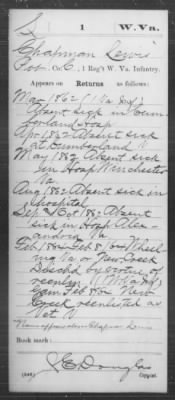 S 1 W. Va.
Chapman Lewis
Co. C, 1 Reg't W. Va. Infantry.
Appears on Returns as follows:
Mar 1862 (1 Va Inf)
Absent sick in Cum
berland Hosp
Apr 1862 Absent sick
at Cumberland
May 1862 Absent sick
in Hosp Winchester
Va
Aug 1862 Absent sick in
Hospital
Sep & Oct 1862 Absent
sick in Hosp Alex-
andria Va
Feb 1864 Feb 8/64 Wheel
ing Va or New Creek
Dischd by virtue of
reenlt
Feb 8/64 New
Creek reenlisted as
Vet V
Name appears also as Chapman Lewis
Book mark:
J E Douglas
Copyist.